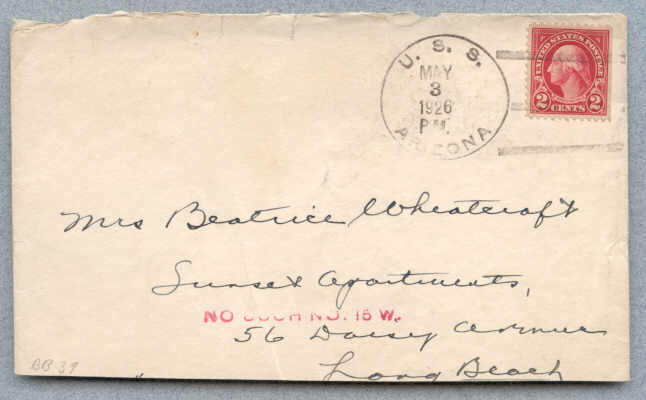 U. S. S.
MAY
3
1926
P.M.
ARIZONA
UNITED STATES POSTAGE
2 CENTS 2
Mrs Beatrice Wheatcroft
Sunset Apartments,
NO SUCH NO. 15 W.
56 Daisy Avenue
Long Beach
BB 39